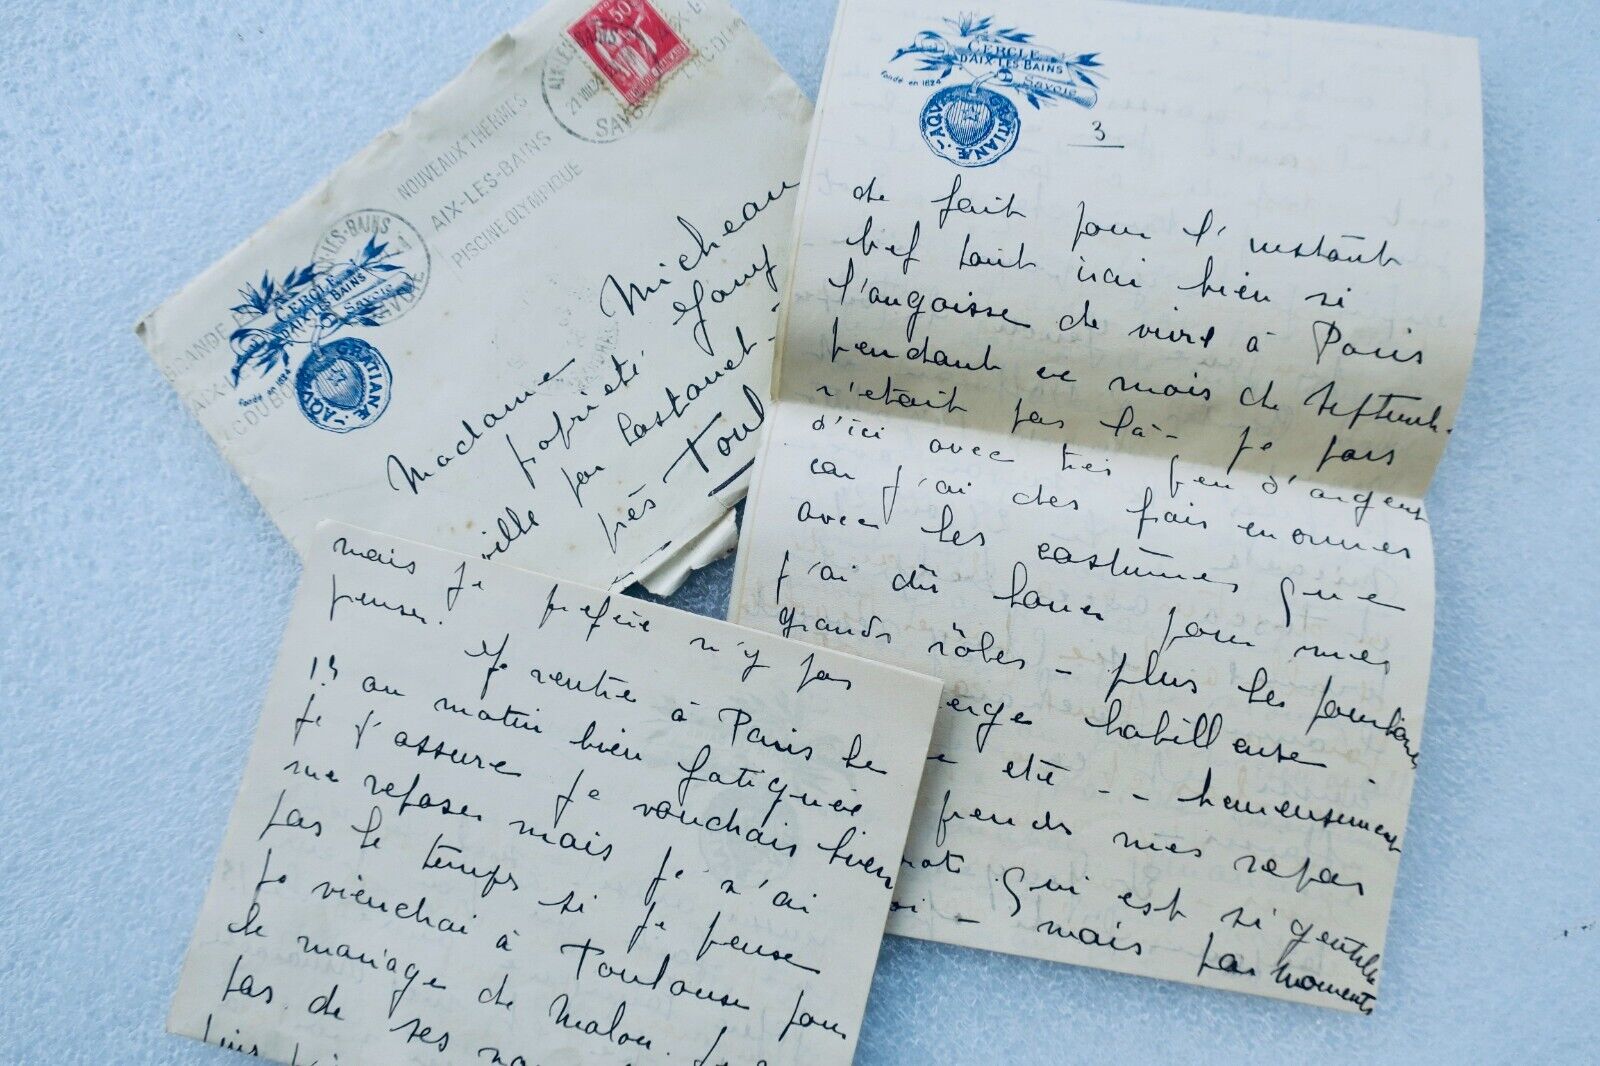 50
AIX-LES-BAINS
SAVOIE
NOUVEAUX THERMES
AIX-LES-BAINS
PISCINE OLYMPIQUE
CERCLE
D'AIX LES BAINS
Savoie
Fondé en 1824
AQVÆ GRATIANÆ
Madame Micheau
propriété
par Lastanet -
près Toul
CERCLE
D'AIX LES BAINS
Savoie
Fondé en 1824
AQVÆ GRATIANÆ
3
de fait pour l'instant
bref tout irai bien si
l'angoisse de vivre à Paris
pendant ce mois de septemb.
n'était pas là - je pars
d'ici avec très peu d'argent
car j'ai des frais enormes
avec les costumes que
j'ai dû louer pour mes
grands rôles - plus les
habilleuse -
ete - - heureusement
prends mes repas
qui est si gentille
- mais par moments
mais je prefère n'y pas
penser.
Je rentre à Paris le
13 au matin bien fatiguée
je t'assure je voudrais bien
me reposer mais je n'ai
pas le temps si je pense
je viendrai à Toulouse pour
le mariage de Malou.
pas de ses